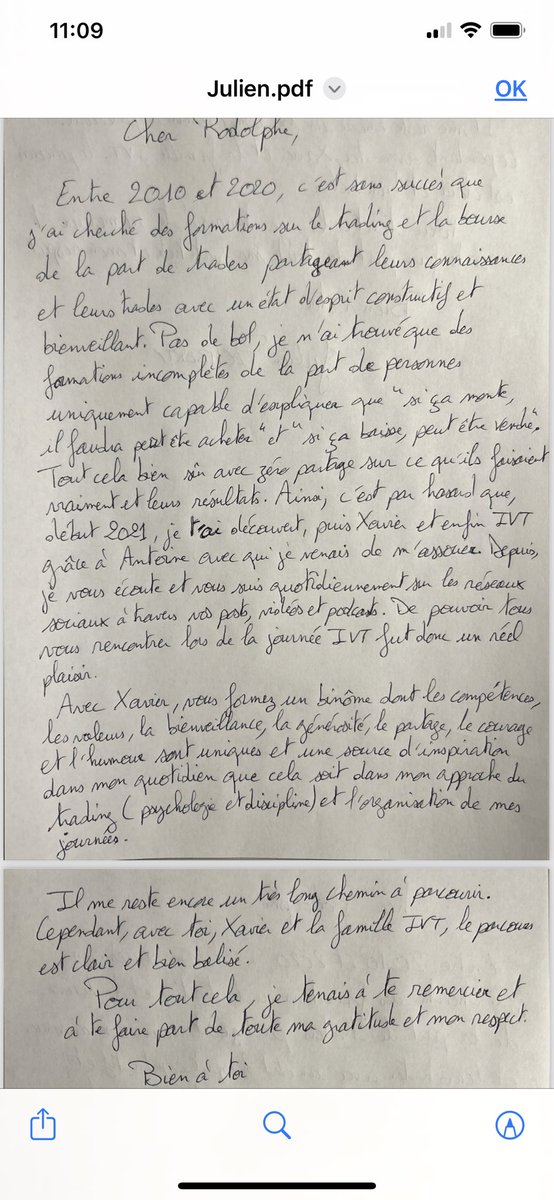 11:09
Julien.pdf
OK
Cher Rodolphe,
Entre 2010 et 2020, c'est sans succès que
j'ai cherché des formations sur le trading et la bourse
de la part de traders partageant leurs connaissances
et leurs trades avec un état d'esprit constructif et
bienveillant. Pas de bol, je n'ai trouvé que des
formations incomplètes de la part de personnes
uniquement capable d'expliquer que "si ça monte,
il faudra peut être acheter" et "si ça baisse, peut être vendre".
Tout cela bien sûr avec zéro partage sur ce qu'ils faisaient
vraiment et leurs résultats. Ainsi, c'est par hasard que,
début 2021, je t'ai découvert, puis Xavier et enfin IVT
grâce à Antoine avec qui je venais de m'associer. Depuis,
je vous écoute et vous suis quotidiennement sur les réseaux
sociaux à travers vos posts, vidéos et podcasts. De pouvoir tous
vous rencontrer lors de la journée IVT fut donc un réel
plaisir.
Avec Xavier, vous formez un binôme dont les compétences,
les valeurs, la bienveillance, la générosité, le partage, le courage
et l'humour sont uniques et une source d'inspiration
dans mon quotidien que cela soit dans mon approche du
trading (psychologie et discipline) et l'organisation de mes
journées.
Il me reste encore un très long chemin à parcourir.
Cependant, avec toi, Xavier et la famille IVT, le parcours
est clair et bien balisé.
Pour tout cela, je tenais à te remercier et
à te faire part de toute ma gratitude et mon respect.
Bien à toi